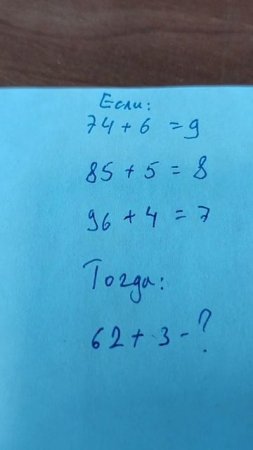 Если:
74 + 6 = 9
85 + 5 = 8
96 + 4 = 7
Тогда:
62 + 3 - ?